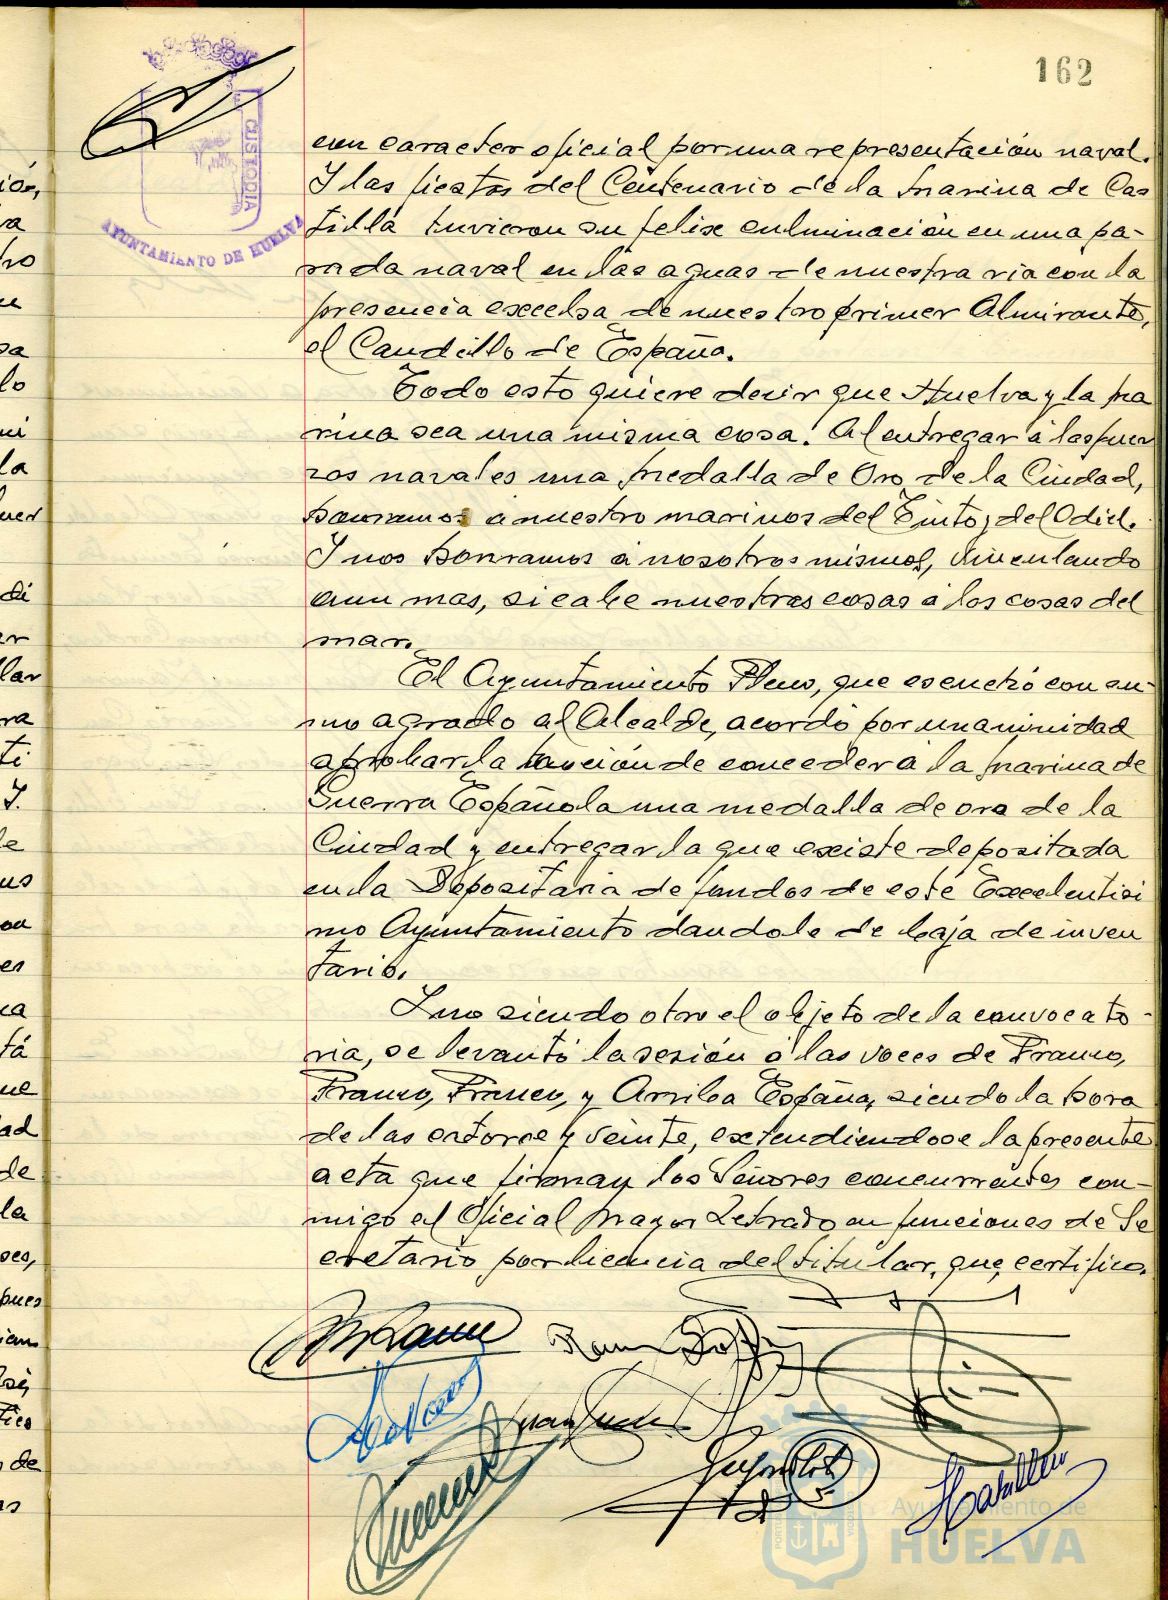 162
CUSTODIA
AYUNTAMIENTO DE HUELVA
con caracter oficial por una representación naval.
Y las fiestas del Centenario de la Marina de Cas
tilla tuvieron su felix culminación en una pa-
rada naval en las aguas de nuestra ria con la
presencia excelsa de nuestro primer Almirante,
el Caudillo de España.
Todo esto quiere decir que Huelva y la Ma
rina sea una misma cosa. Al entregar a las fuer
zas navales una Medalla de Oro de la Ciudad,
honramos a nuestro marinos del Tinto y del Odiel.
Y nos honramos a nosotros mismos, vinculando
aun mas, si cabe nuestras cosas a las cosas del
mar.
El Ayuntamiento Pleno, que escuchó con su-
mo agrado al Alcalde, acordó por unanimidad
aprobar la moción de conceder a la Marina de
Guerra Española una medalla de oro de la
Ciudad y entregar la que existe depositada
en la Depositaria de fondos de este Excelentisi
mo Ayuntamiento dandole de baja de inven
tario.
Y no siendo otro el objeto de la convocato-
ria, se levantó la sesión a las voces de Franco,
Franco, Franco, y Arriba España, siendo la hora
de las catorce y veinte, extendiendose la presente
acta que firman los Señores concurrentes con-
migo el Oficial Mayor Letrado en funciones de Se
cretario por licencia del titular, que, certifico.
Ayuntamiento de
HUELVA